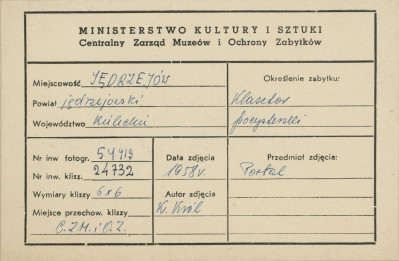 MINISTERSTWO KULTURY I SZTUKI
Centralny Zarząd Muzeów i Ochrony Zabytków
Miejscowość JĘDRZEJÓW
Powiat jędrzejowski
Województwo kielecki
Określenie zabytku:
Klasztor
pocysterski
Nr inw fotogr. 54419
Nr inw. klisz. 24732
Wymiary kliszy 6x6
Miejsce przechow. kliszy
C.Z.M. i O.Z.
Data zdjęcia
1958 r.
Autor zdjęcia
K. Król
Przedmiot zdjęcia:
Portal